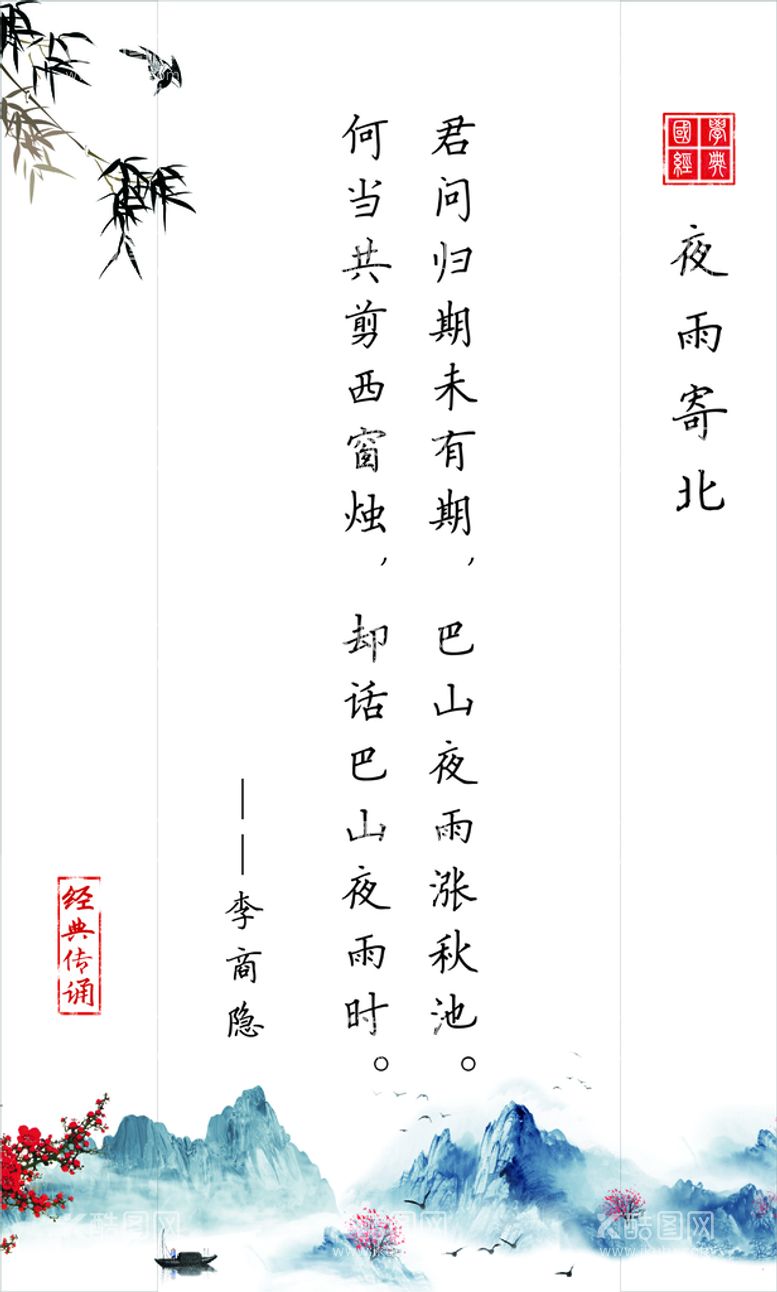 國學
經典
夜雨寄北
君问归期未有期，巴山夜雨涨秋池。
何当共剪西窗烛，却话巴山夜雨时。
——李商隐
经典传诵
酷图网
酷图网
酷图网